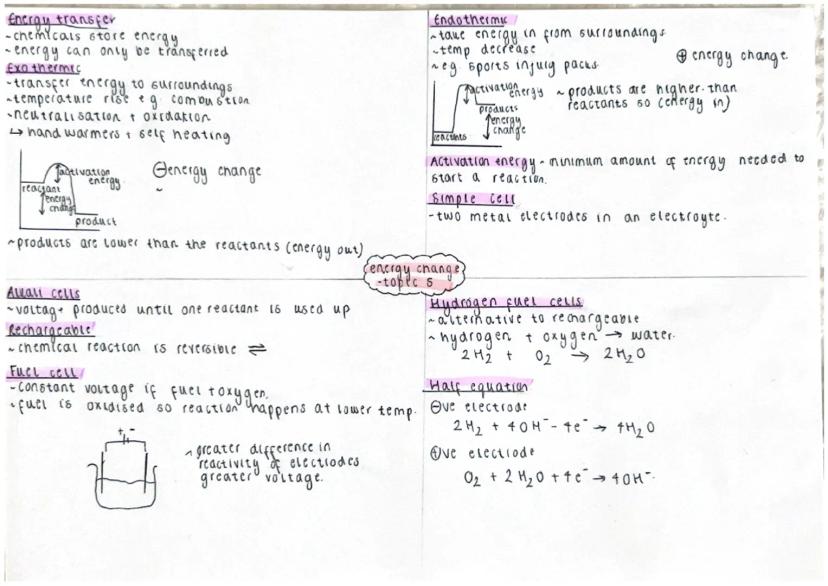 Energy transfer
~chemicals store energy
~energy can only be transferred
Exothermic
~transfer energy to surroundings
~temperature rise e.g. combustion
~neutralisation + oxidation
↳ hand warmers + self heating
activation energy
reactant
energy change
product
⊖energy change
~products are lower than the reactants (energy out)
Endothermic
~take energy in from surroundings
~temp decrease
~eg. sports injury packs
⊕ energy change.
activation energy
products
energy change
reactants
~products are higher than
reactants so (energy in)
Activation energy - minimum amount of energy needed to
start a reaction.
Simple cell
-two metal electrodes in an electroyte.
energy change
-topic 5
Alkali cells
~voltage produced until one reactant is used up
Rechargeable
~chemical reaction is reversible ⇌
Fuel cell
~constant voltage if fuel + oxygen.
~fuel is oxidised so reaction happens at lower temp.
+ -
~greater difference in
reactivity of electrodes
greater voltage.
Hydrogen fuel cells
~alternative to rechargeable
~hydrogen + oxygen → water.
2H₂ + O₂ → 2H₂O
Half equation
⊖ve electrode
2H₂ + 4OH⁻ - 4e⁻ → 4H₂O
⊕ve electrode
O₂ + 2H₂O + 4e⁻ → 4OH⁻.